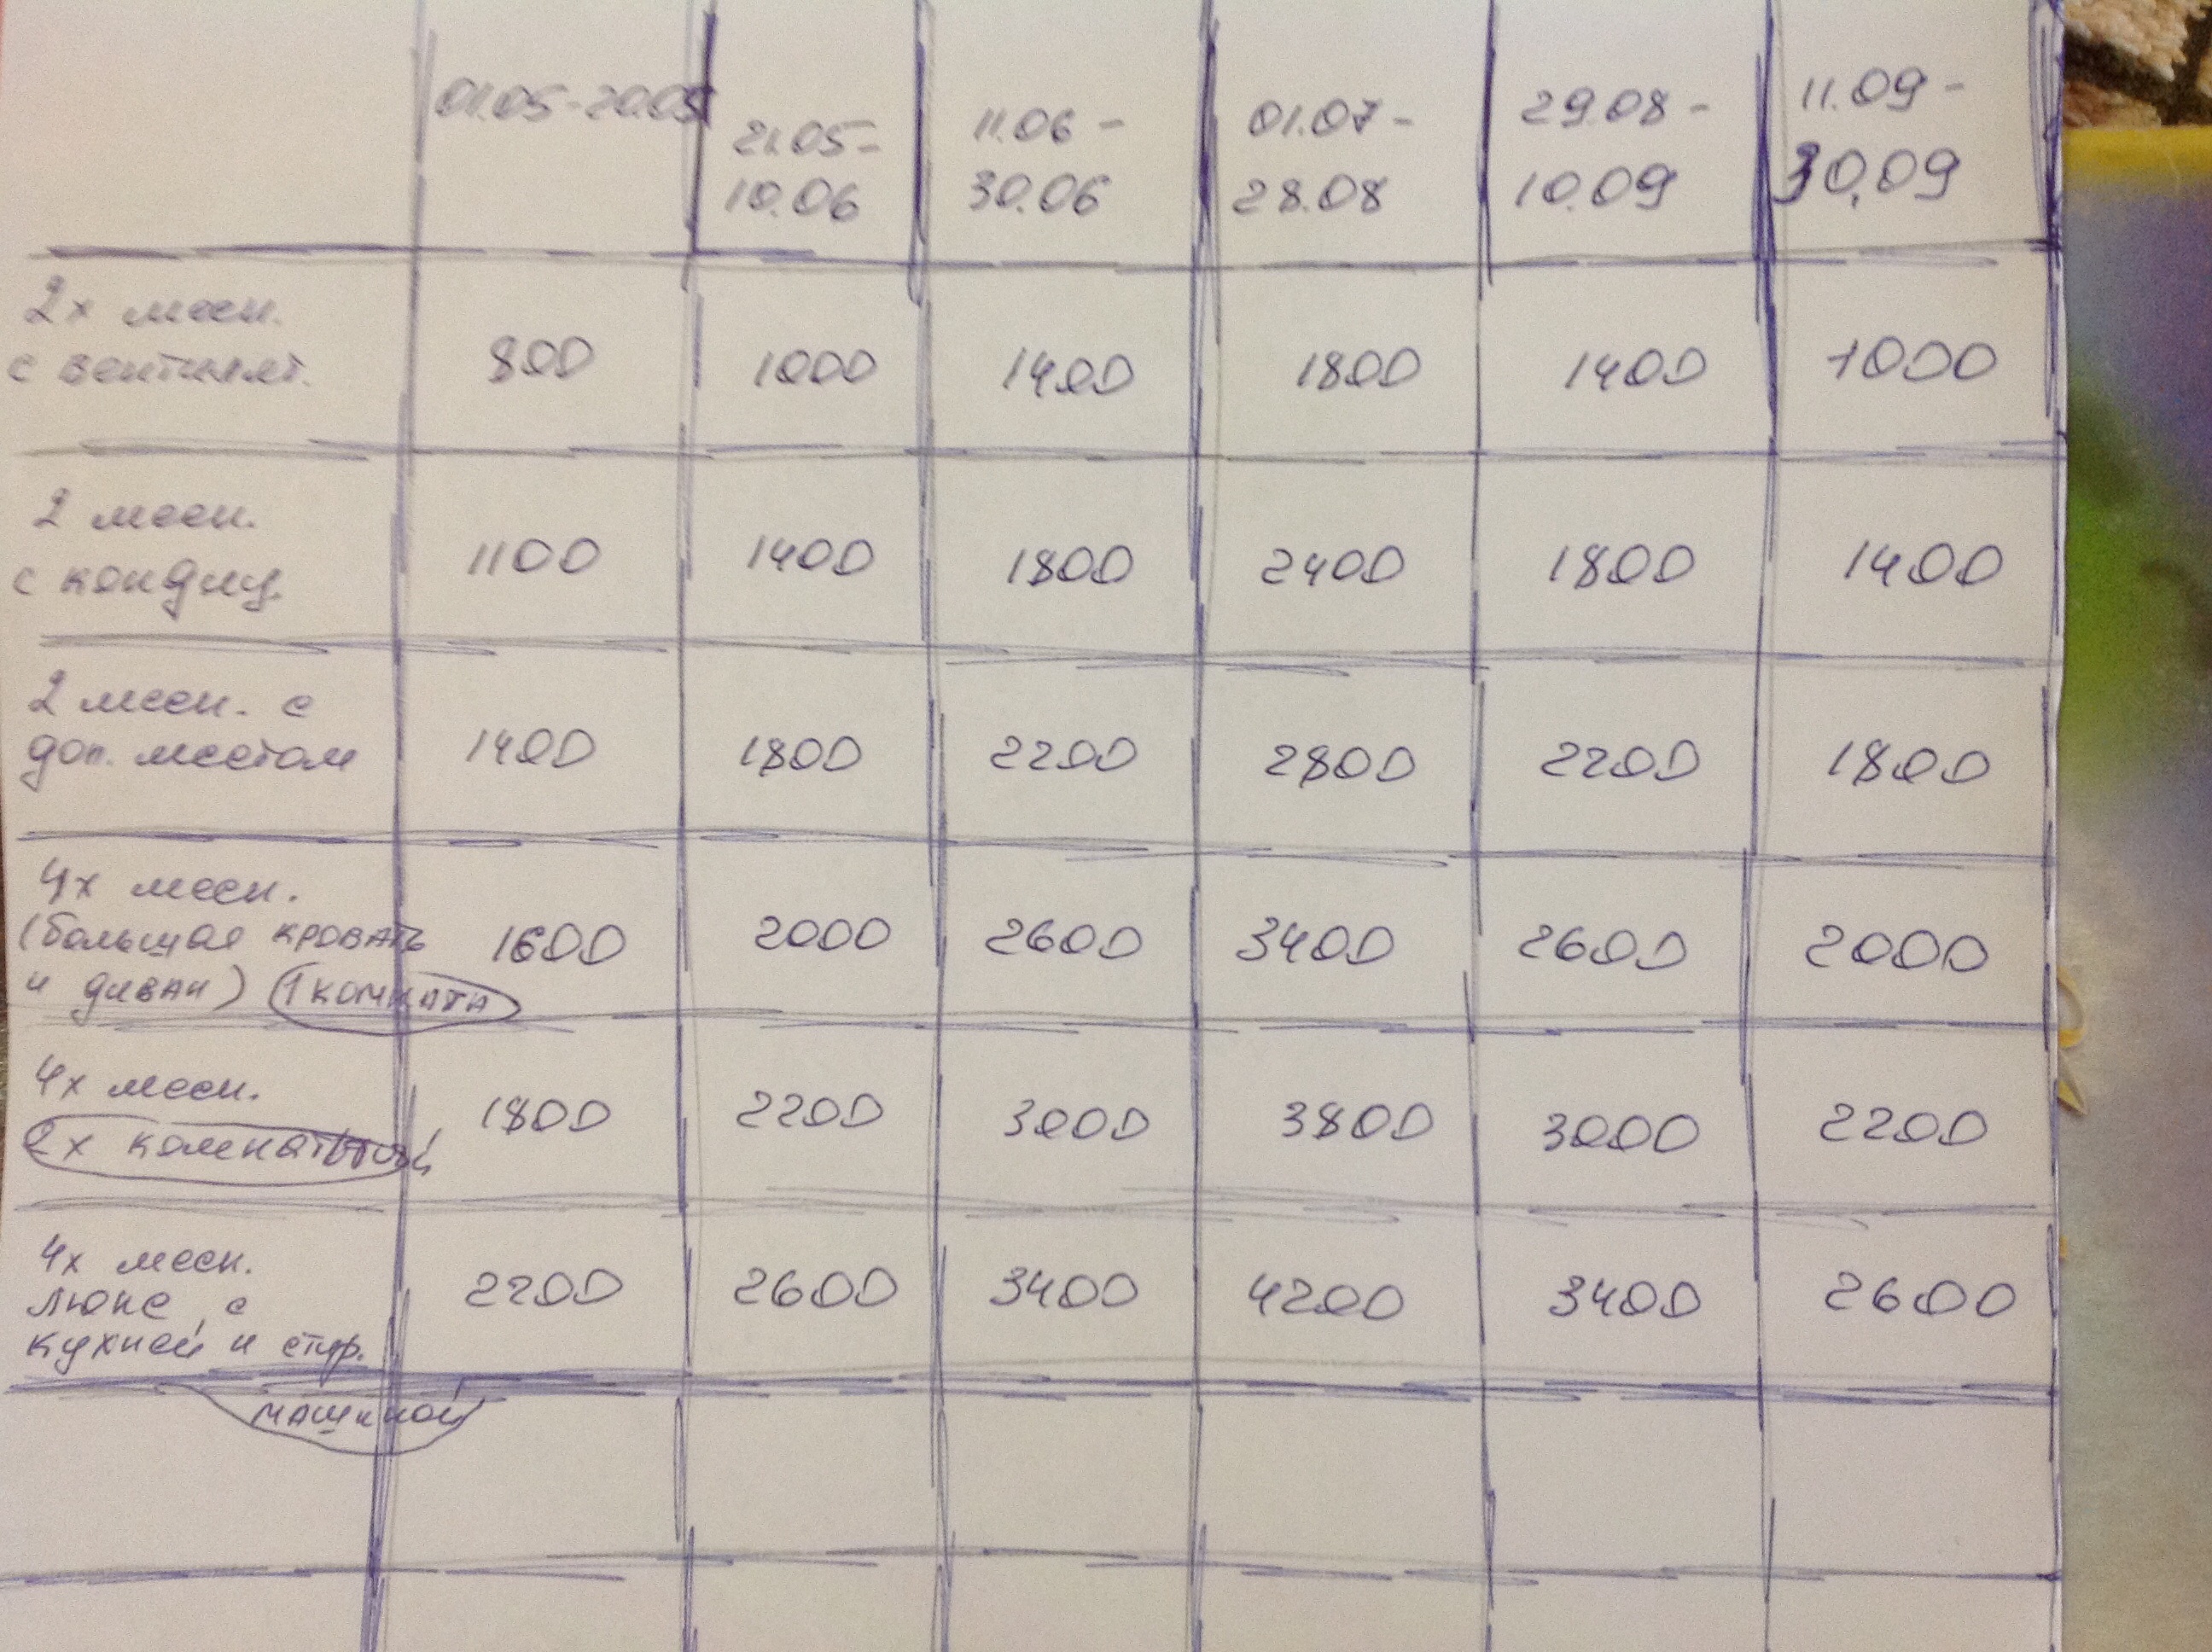 01.05-20.05
21.05-
10.06
11.06-
30.06
01.07-
28.08
29.08-
10.09
11.09-
30.09
2х месн.
с вентилят.
800 1000 1400 1800 1400 1000
2 месн.
с кондиц.
1100 1400 1800 2400 1800 1400
2 месн. с
доп. местом
1400 1800 2200 2800 2200 1800
4х месн.
(большая кровать
и диван) 1 комната
1600 2000 2600 3400 2600 2000
4х месн.
2х комнатный
1800 2200 3000 3800 3000 2200
4х месн.
люкс, с
кухней и стир.
машиной
2200 2600 3400 4200 3400 2600